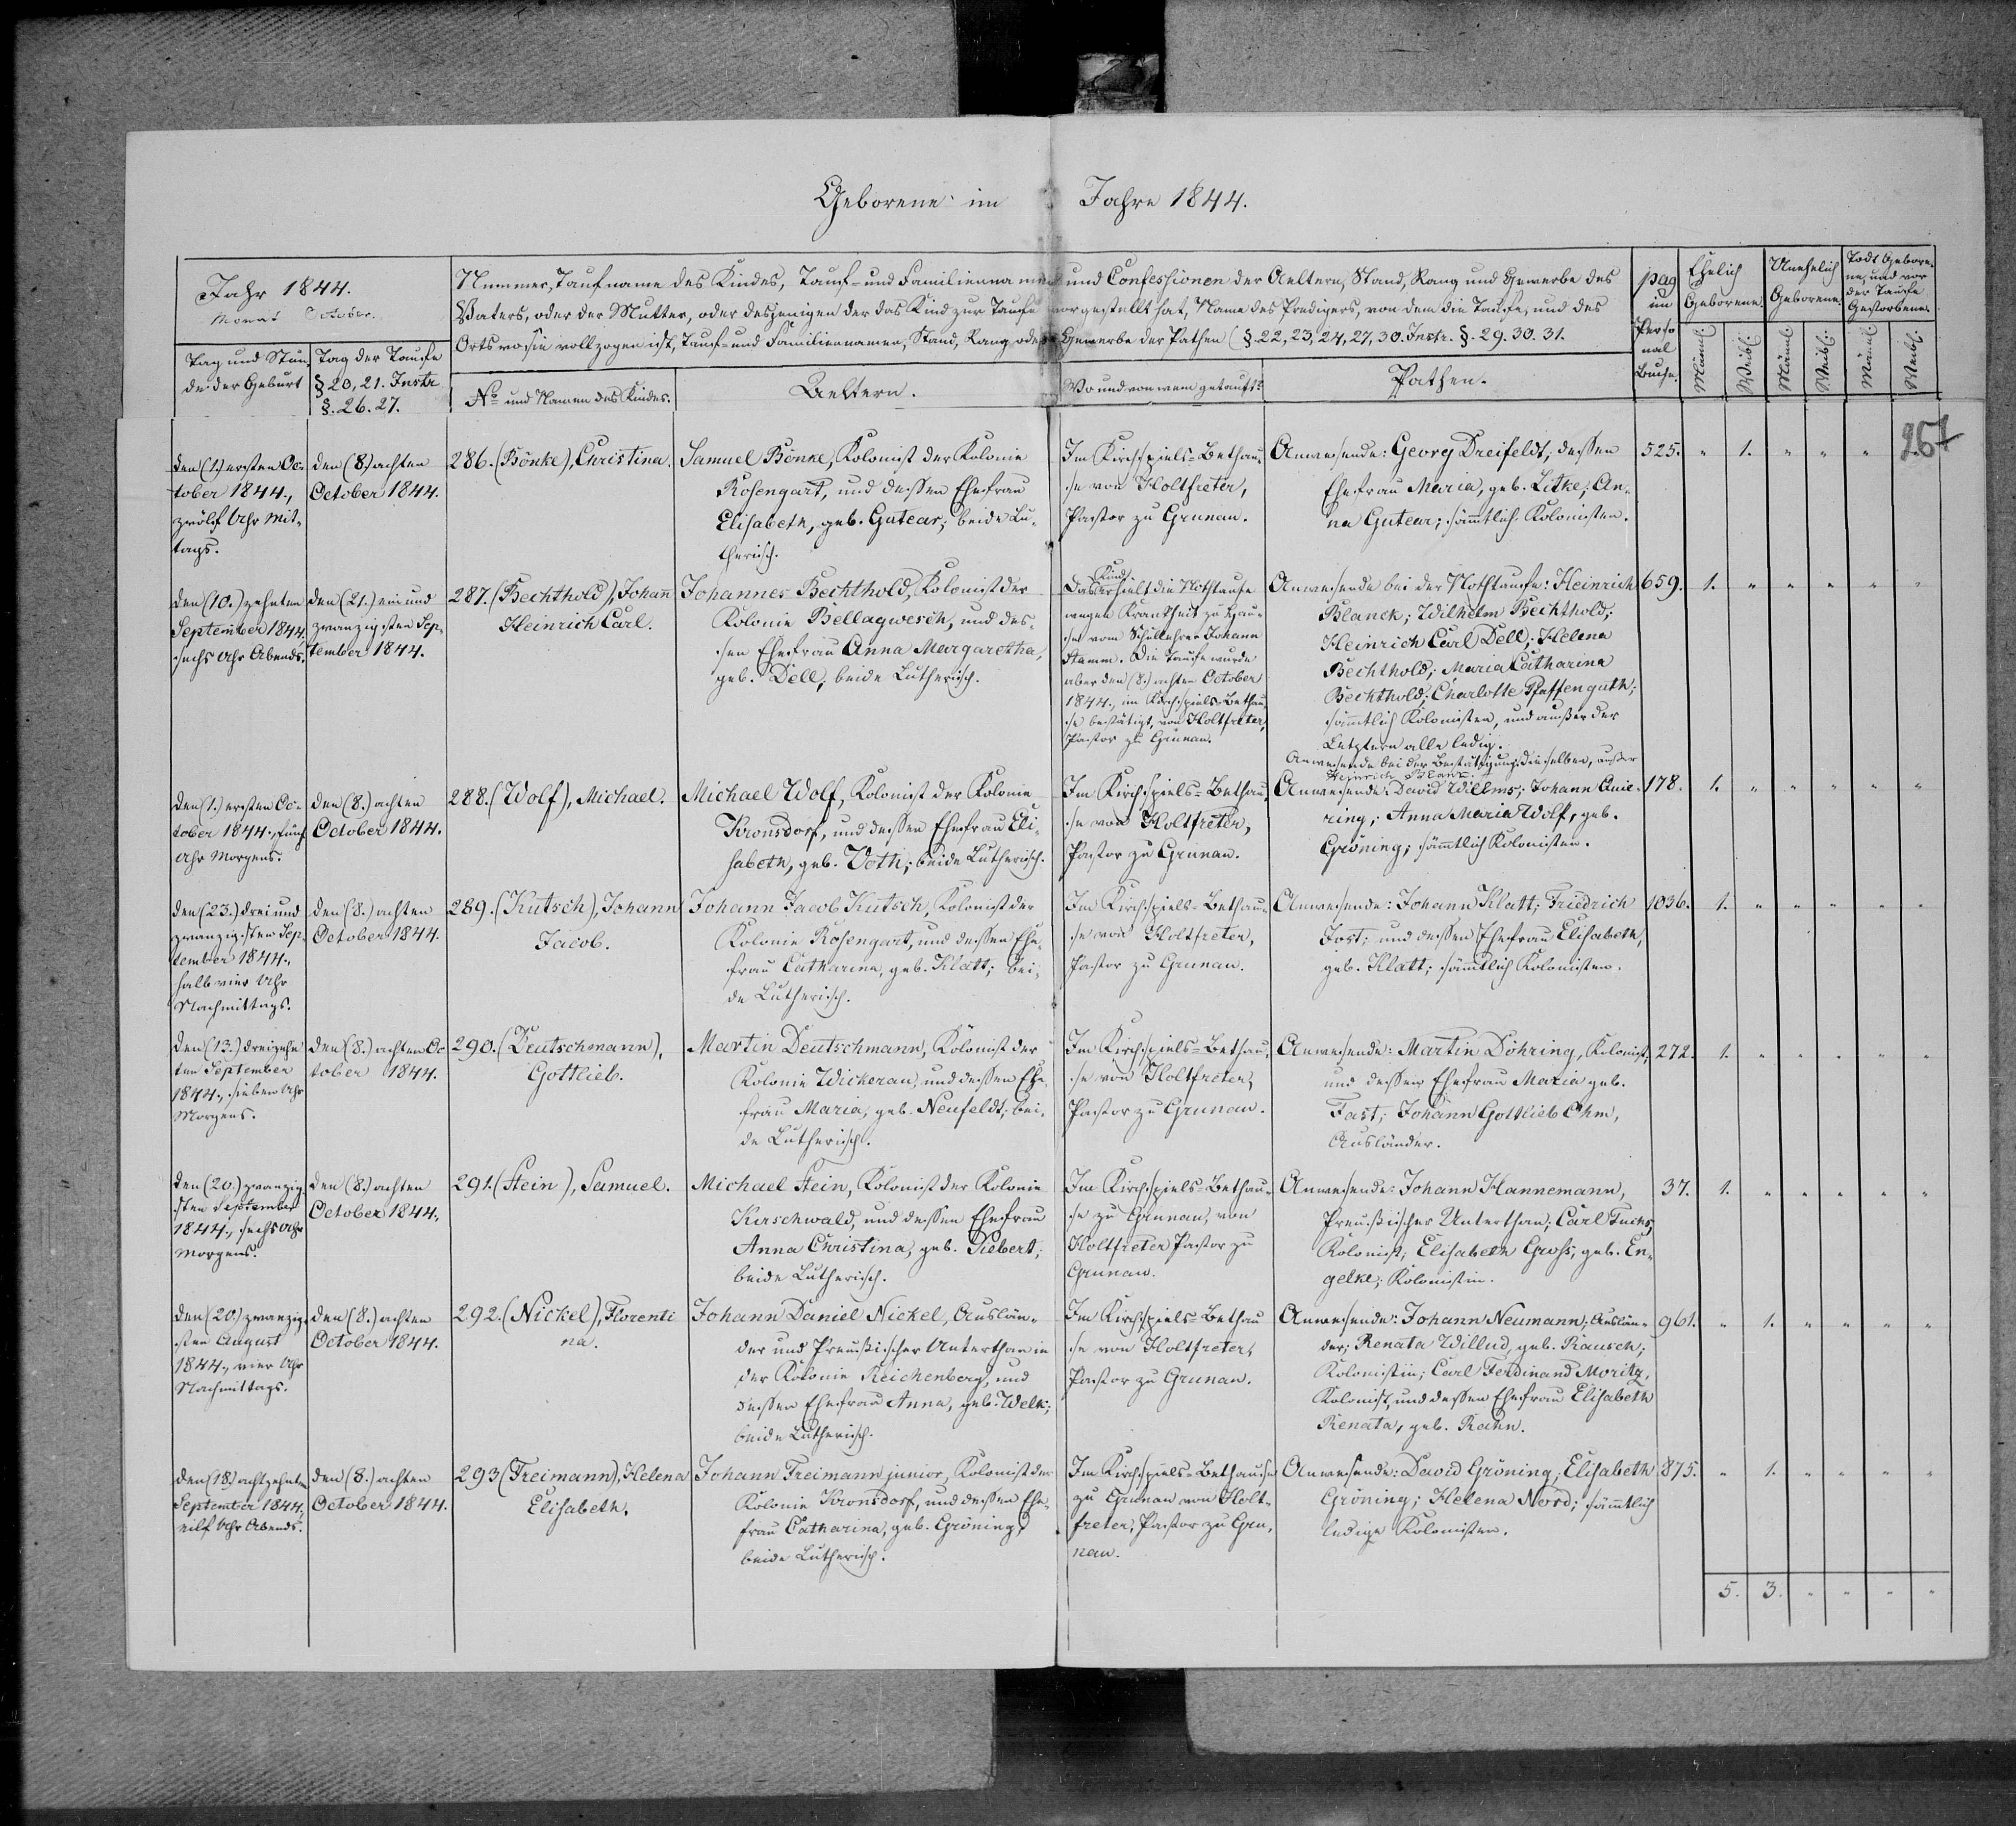 Geborene im Jahre 1844.
Jahr 1844.
Monat October.
Tag und Stun-
de der Geburt
Tag der Taufe
§ 20, 21. Instr.
§. 26. 27.
Nummer, Taufname des Kindes, Tauf- und Familienname und Confessionen der Aeltern, Stand, Rang und Gewerbe des
Vaters, oder der Mutter, oder desjenigen der das Kind zur Taufe vorgestellt hat, Name des Predigers, von dem die Taufe, und des
Orts wo sie vollzogen ist, Tauf- und Familiennamen, Stand, Rang oder Gewerbe der Pathen (§. 22, 23, 24, 27, 30. Instr. §. 29. 30. 31.
No und Namen des Kindes.
Aeltern.
Wo und von wem getauft?
Pathen.
pag
im
Perso
nal
Buche.
Ehelich
Geborene.
Unehelich
Geborene.
Todt Gebore-
ne, und vor
der Taufe
Gestorbene.
Männl.
Weibl.
Männl.
Weibl.
Männl.
Weibl.
267
den (1.) ersten Oc-
tober 1844.,
zwölf Uhr Mit-
tags.
den (8.) achten
October 1844.
286. (Bönke), Christina.
Samuel Bönke, Kolonist der Kolonie
Rosengart, und dessen Ehefrau
Elisabeth, geb. Gutear; beide Lu-
therisch.
Im Kirchspiels-Bethau-
se von Holtfreter,
Pastor zu Grunau.
Anwesende: Georg Dreifeldt; dessen
Ehefrau Maria, geb. Litke; An-
na Gutear; sämtlich Kolonisten.
525. " 1. " " " "
den (10.) zehnten
September 1844.,
sechs Uhr Abends.
den (21.) ein und
zwanzigsten Sep-
tember 1844.
287. (Bechthold), Johann
Heinrich Carl.
Johannes Bechthold, Kolonist der
Kolonie Bellagwesch, und des-
sen Ehefrau Anna Margaretha,
geb. Dell, beide Lutherisch.
Kind
Das erhielt die Nothtaufe
wegen Krankheit zu Hau-
se vom Schullehrer Johann
Stamm. Die Taufe wurde
aber den (8.) achten October
1844., im Kirchspiels-Bethau-
se bestätigt, von Holtfreter,
Pastor zu Grunau.
Anwesende bei der Nothtaufe: Heinrich
Blanck; Wilhelm Bechthold;
Heinrich Carl Dell; Helena
Bechthold; Maria Catharina
Bechthold; Charlotte Pfaffenguth;
sämtlich Kolonisten, und außer der
Letztern alle ledig.
Anwesende bei der Bestätigung: dieselben, außer
Heinrich Blank.
659. 1. " " " " "
den (1.) ersten Oc-
tober 1844., fünf
Uhr Morgens.
den (8.) achten
October 1844.
288. (Wolf), Michael.
Michael Wolf, Kolonist der Kolonie
Kronsdorf, und dessen Ehefrau Eli-
sabeth, geb. Voth; beide Lutherisch.
Im Kirchspiels-Bethau-
se von Holtfreter,
Pastor zu Grunau.
Anwesende: David Willms; Johann Quie-
ring; Anna Maria Wolf, geb.
Gröning; sämtlich Kolonisten.
178. 1. " " " " "
den (23.) drei und
zwanzigsten Sep-
tember 1844.,
halb vier Uhr
Nachmittags.
den (8.) achten
October 1844.
289. (Kutsch), Johann
Jacob.
Johann Jacob Kutsch, Kolonist der
Kolonie Rosengart, und dessen Ehe-
frau Catharina, geb. Klatt; bei-
de Lutherisch.
Im Kirchspiels-Bethau-
se von Holtfreter,
Pastor zu Grunau.
Anwesende: Johann Klatt; Friedrich
Jost; und dessen Ehefrau Elisabeth,
geb. Klatt; sämtlich Kolonisten.
1036. 1. " " " " "
den (13.) dreizehn
ten September
1844., sieben Uhr
Morgens.
den (8.) achten Oc
tober 1844.
290. (Deutschmann),
Gottlieb.
Martin Deutschmann, Kolonist der
Kolonie Wickerau, und dessen Ehe-
frau Maria, geb. Neufeldt; bei-
de Lutherisch.
Im Kirchspiels-Bethau-
se von Holtfreter,
Pastor zu Grunau.
Anwesende: Martin Döhring, Kolonist;
und dessen Ehefrau Maria geb.
Fast; Johann Gottlieb Ohm,
Ausländer.
272. 1. " " " " "
den (20.) zwanzig-
sten September
1844., sechs Uhr
Morgens.
den (8.) achten
October 1844.
291. (Stein), Samuel.
Michael Stein, Kolonist der Kolonie
Kirschwald, und dessen Ehefrau
Anna Christina, geb. Siebert;
beide Lutherisch.
Im Kirchspiels-Bethau-
se zu Grunau, von
Holtfreter Pastor zu
Grunau.
Anwesende: Johann Hannemann,
Preußischer Unterthan; Carl Fuchs,
Kolonist; Elisabeth Groß, geb. En-
gelke; Kolonistin.
37. 1. " " " " "
den (20.) zwanzig-
sten August
1844., vier Uhr
Nachmittags.
den (8.) achten
October 1844.
292. (Nickel), Florenti
na.
Johann Daniel Nickel, Auslän-
der und Preußischer Unterthan in
der Kolonie Reichenberg, und
dessen Ehefrau Anna, geb. Welk;
beide Lutherisch.
Im Kirchspiels-Bethau
se von Holtfreter,
Pastor zu Grunau.
Anwesende: Johann Neumann, Auslän-
der; Renata Willud, geb. Rausch;
Kolonistin; Carl Ferdinand Moritz,
Kolonist, und dessen Ehefrau Elisabeth
Renata, geb. Rahn.
961. " 1. " " " "
den (18.) achtzehnten
September 1844,
eilf Uhr Abends.
den (8.) achten
October 1844.
293 (Freimann), Helena
Elisabeth.
Johann Freimann junior, Kolonist der
Kolonie Kronsdorf, und dessen Ehe-
frau Catharina, geb. Gröning;
beide Lutherisch.
Im Kirchspiels-Bethause
zu Grunau von Holt-
freter, Pastor zu Gru-
nau.
Anwesende: David Gröning; Elisabeth
Gröning; Helena Nord; sämtlich
ledige Kolonisten.
875. " 1. " " " "
5. 3. " " " "